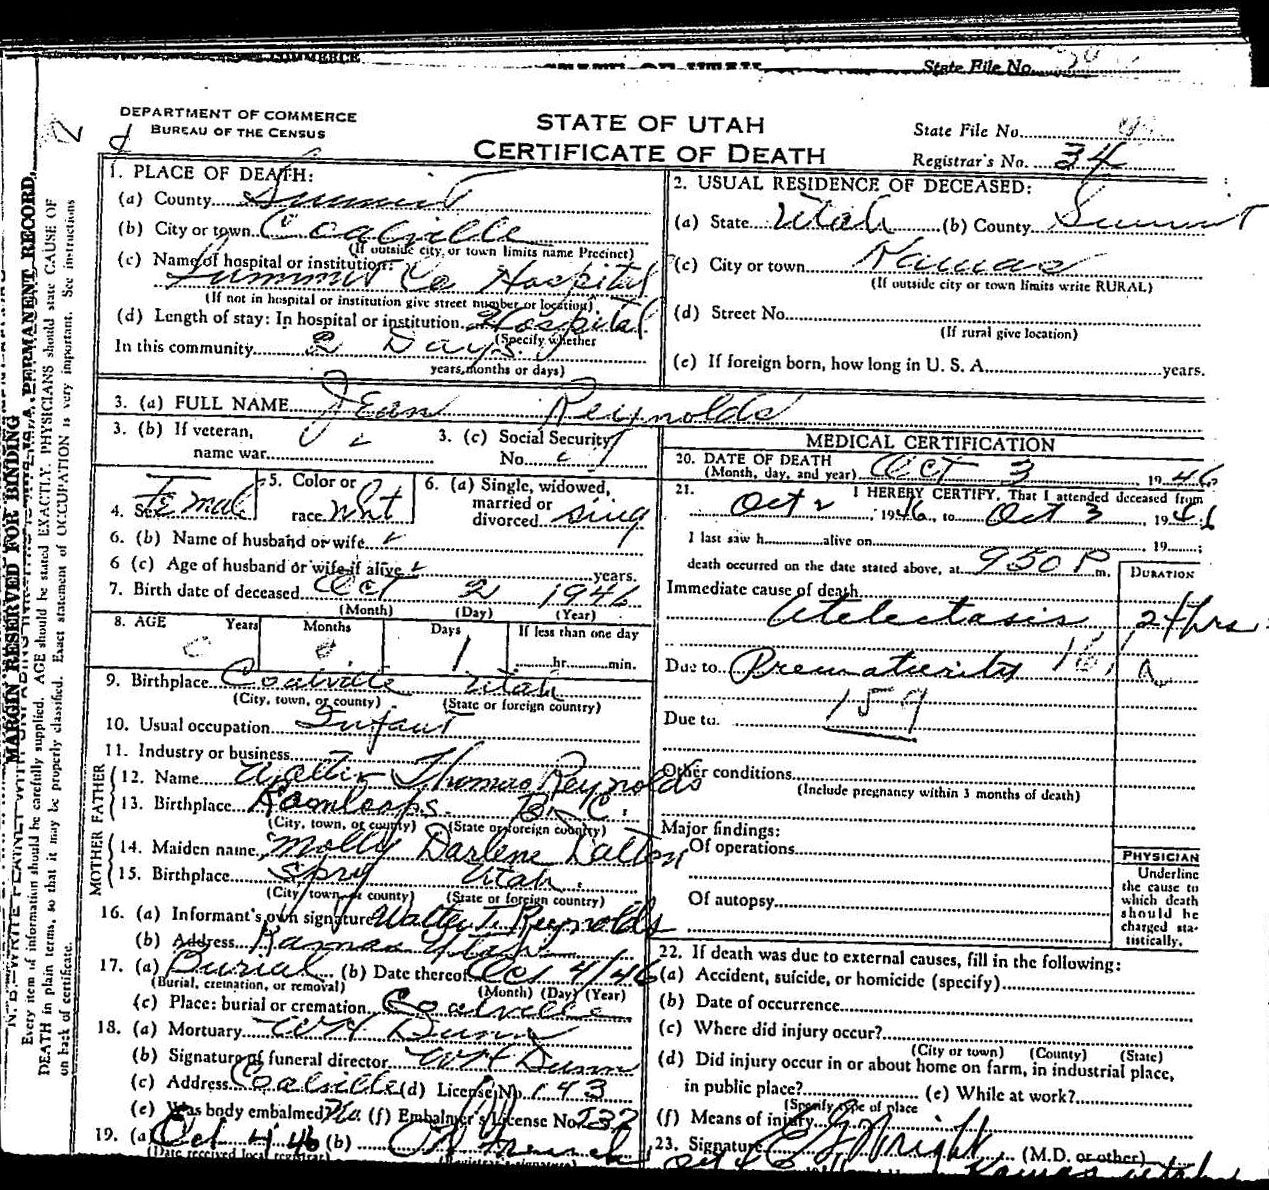 COMMERCE
STATE OF UTAH
State File No.
DEPARTMENT OF COMMERCE
BUREAU OF THE CENSUS
STATE OF UTAH
CERTIFICATE OF DEATH
State File No.
Registrar's No. 34
MARGIN RESERVED FOR BINDING
N. B.—WRITE PLAINLY WITH UNFADING INK—THIS IS A PERMANENT RECORD.
Every item of information should be carefully supplied. AGE should be stated EXACTLY. PHYSICIANS should state CAUSE OF
DEATH in plain terms, so that it may be properly classified. Exact statement of OCCUPATION is very important. See instructions
on back of certificate.
1. PLACE OF DEATH:
(a) County Summit
(b) City or town Coalville
(If outside city or town limits name Precinct)
(c) Name of hospital or institution:
Summit Co Hospital
(If not in hospital or institution give street number or location)
(d) Length of stay: In hospital or institution Hospital
(Specify whether
In this community 2 Days.
years, months or days)
2. USUAL RESIDENCE OF DECEASED:
(a) State Utah (b) County Summit
(c) City or town Kamas
(If outside city or town limits write RURAL)
(d) Street No.
(If rural give location)
(e) If foreign born, how long in U. S. A. years.
3. (a) FULL NAME Jean Reynolds
3. (b) If veteran,
name war
3. (c) Social Security
No.
4. Sex Female
5. Color or
race Wht
6. (a) Single, widowed,
married or
divorced sing
6. (b) Name of husband or wife
6 (c) Age of husband or wife if alive years.
7. Birth date of deceased Oct 2 1946
(Month) (Day) (Year)
8. AGE Years Months Days If less than one day
0 0 1 hr. min.
9. Birthplace Coalville Utah
(City, town, or county) (State or foreign country)
10. Usual occupation Infant
11. Industry or business
FATHER
12. Name Walter Thomas Reynolds
13. Birthplace Kamloops B. C.
(City, town, or county) (State or foreign country)
MOTHER
14. Maiden name Molly Darlene Dalton
15. Birthplace Spry Utah
(City, town, or county) (State or foreign country)
16. (a) Informant's own signature Walter T. Reynolds
(b) Address Kamas Utah
17. (a) Burial (b) Date thereof Oct 4/46
(Burial, cremation, or removal) (Month) (Day) (Year)
(c) Place: burial or cremation Coalville
18. (a) Mortuary WH Dunn
(b) Signature of funeral director WH Dunn
(c) Address Coalville (d) License No. 143
(e) Was body embalmed? No. (f) Embalmer's License No. 232
19. (a) Oct 4 46 (b)
(Date received local registrar) (Registrar's signature)
MEDICAL CERTIFICATION
20. DATE OF DEATH
(Month, day, and year) Oct 3 1946
21. I HEREBY CERTIFY, That I attended deceased from
Oct 2, 1946, to Oct 3 1946
I last saw h alive on , 19 ;
death occurred on the date stated above, at 9 50 P m.
DURATION
Immediate cause of death
Atelectasis 24 hrs
Due to Prematurity 161 a
159
Due to
Other conditions
(Include pregnancy within 3 months of death)
Major findings:
Of operations
Of autopsy
PHYSICIAN
Underline
the cause to
which death
should be
charged sta-
tistically.
22. If death was due to external causes, fill in the following:
(a) Accident, suicide, or homicide (specify)
(b) Date of occurrence
(c) Where did injury occur?
(City or town) (County) (State)
(d) Did injury occur in or about home on farm, in industrial place,
in public place? (e) While at work?
(Specify type of place
(f) Means of injury
23. Signature Wright (M.D. or other)
Kamas Utah